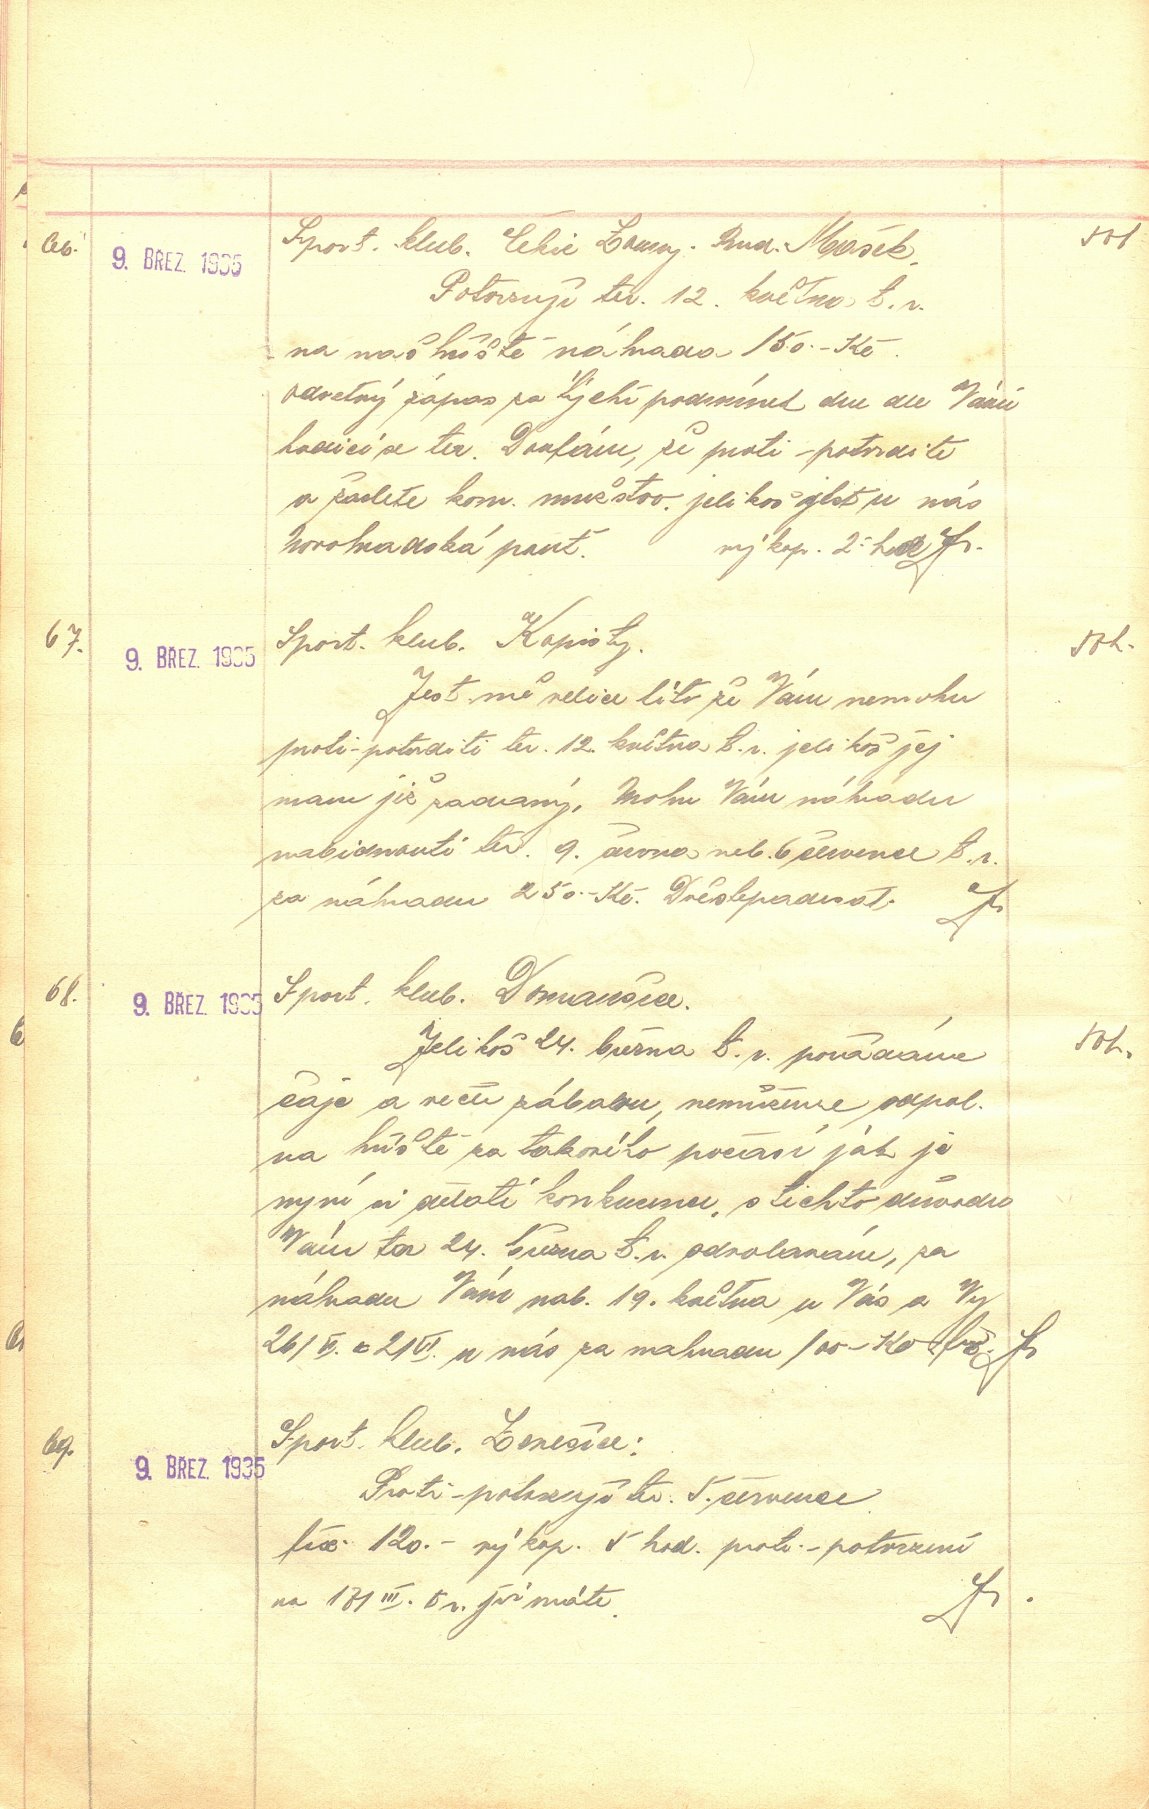 66.
9. BŘEZ. 1935
Sport. klub. Čechie Louny. Rud. Mašek.
50h
Potvrzuji ter. 12. května t. r.
na naš hřiště náhrada 150.- Kč.
odvetný zápas za týchž podmínek dne dle Vámi
hodící se ter. Doufám, že proti-potvrdíte
a žádete kom. mužstvo. jelikož jest u nás
Novohradská pouť. výkop. 2 hod
67.
9. BŘEZ. 1935
Sport. klub. Kopisty.
50h.
Jest mě velice líto že Vám nemohu
proti-potvrditi ter. 12. května t. r. jelikož jej
mam již zadraný. Mohu Vám náhradu
nabídnouti ter. 9. června neb. 6 července t. r.
za náhradu 250.- Kč. Dvěstepadesát.
68.
9. BŘEZ. 1935
Sport. klub. Domaušice.
Jelikož 24. března t. r. pořádáme
50h.
čaje a večer zábavu, nemůžeme odpol.
na hřiště za takovéto počasí jak je
nyní si dělati konkurenci, s těchto důvodu
Vám ter 24. března t. r. odvolávám, za
náhradu Vám nab. 19. května u Vás a Vy
26/V. a 2/VI. u nás za nahradu 100.- Kč
69.
9. BŘEZ. 1935
Sport. klub. Lenešice:
Proti-potvrzuji ter. 5. července
fix. 120.- výkop. 5 hod. proti-potvrzení
na 17/III. t r. již máte.